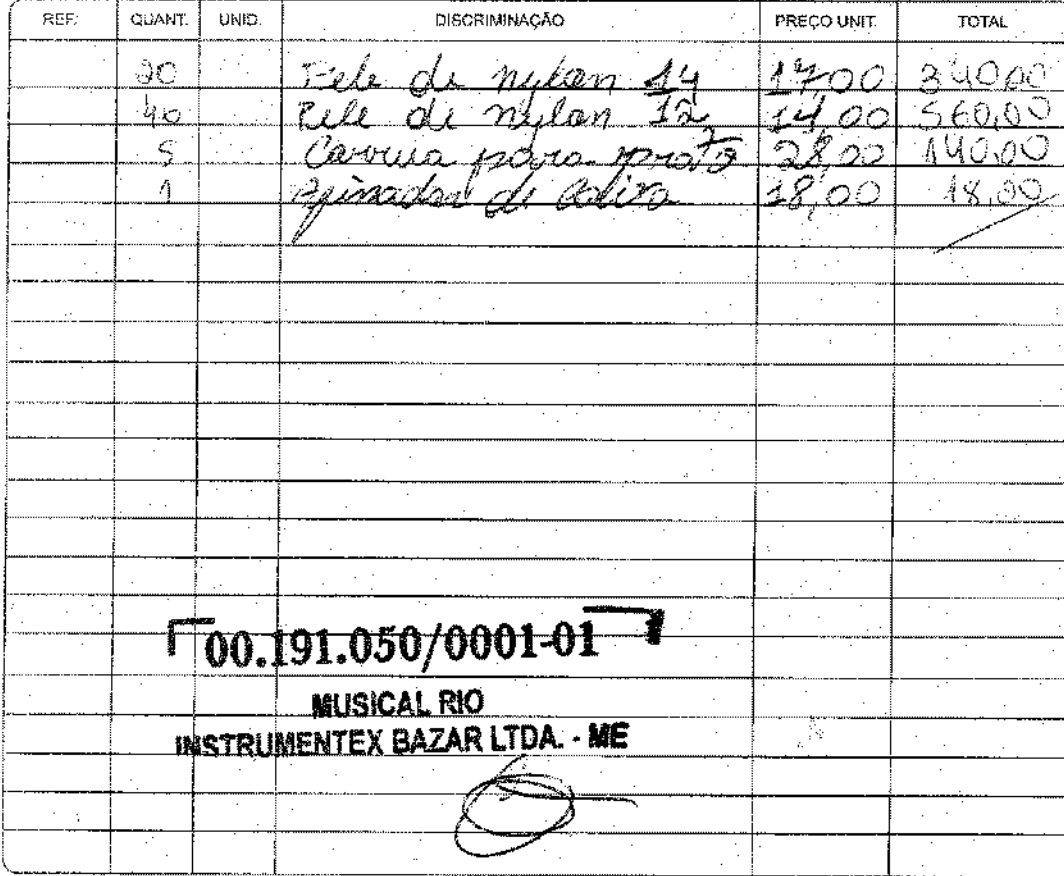 REF. QUANT. UNID. DISCRIMINAÇÃO PREÇO UNIT. TOTAL
20 Pele de nylon 14 17,00 340,00
40 Pele de nylon 12 14,00 560,00
5 Correia para prato 28,00 140,00
1 Afinador de 18,00 18,00
00.191.050/0001-01
MUSICAL RIO
INSTRUMENTEX BAZAR LTDA. - ME